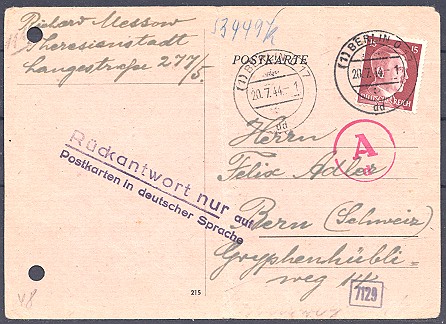 Richard Messow
Theresienstadt
Langestraße 277/5.
53999/k
POSTKARTE
(1) BERLIN
20.7.44.- 1
dd
(1) BERLIN O
20.7.44.- 1
dd
15
A
Rückantwort nur auf
Postkarten in deutscher Sprache
Herrn
Felix Adler
Bern (Schweiz)
Gryphenhübli-
weg
215
7129